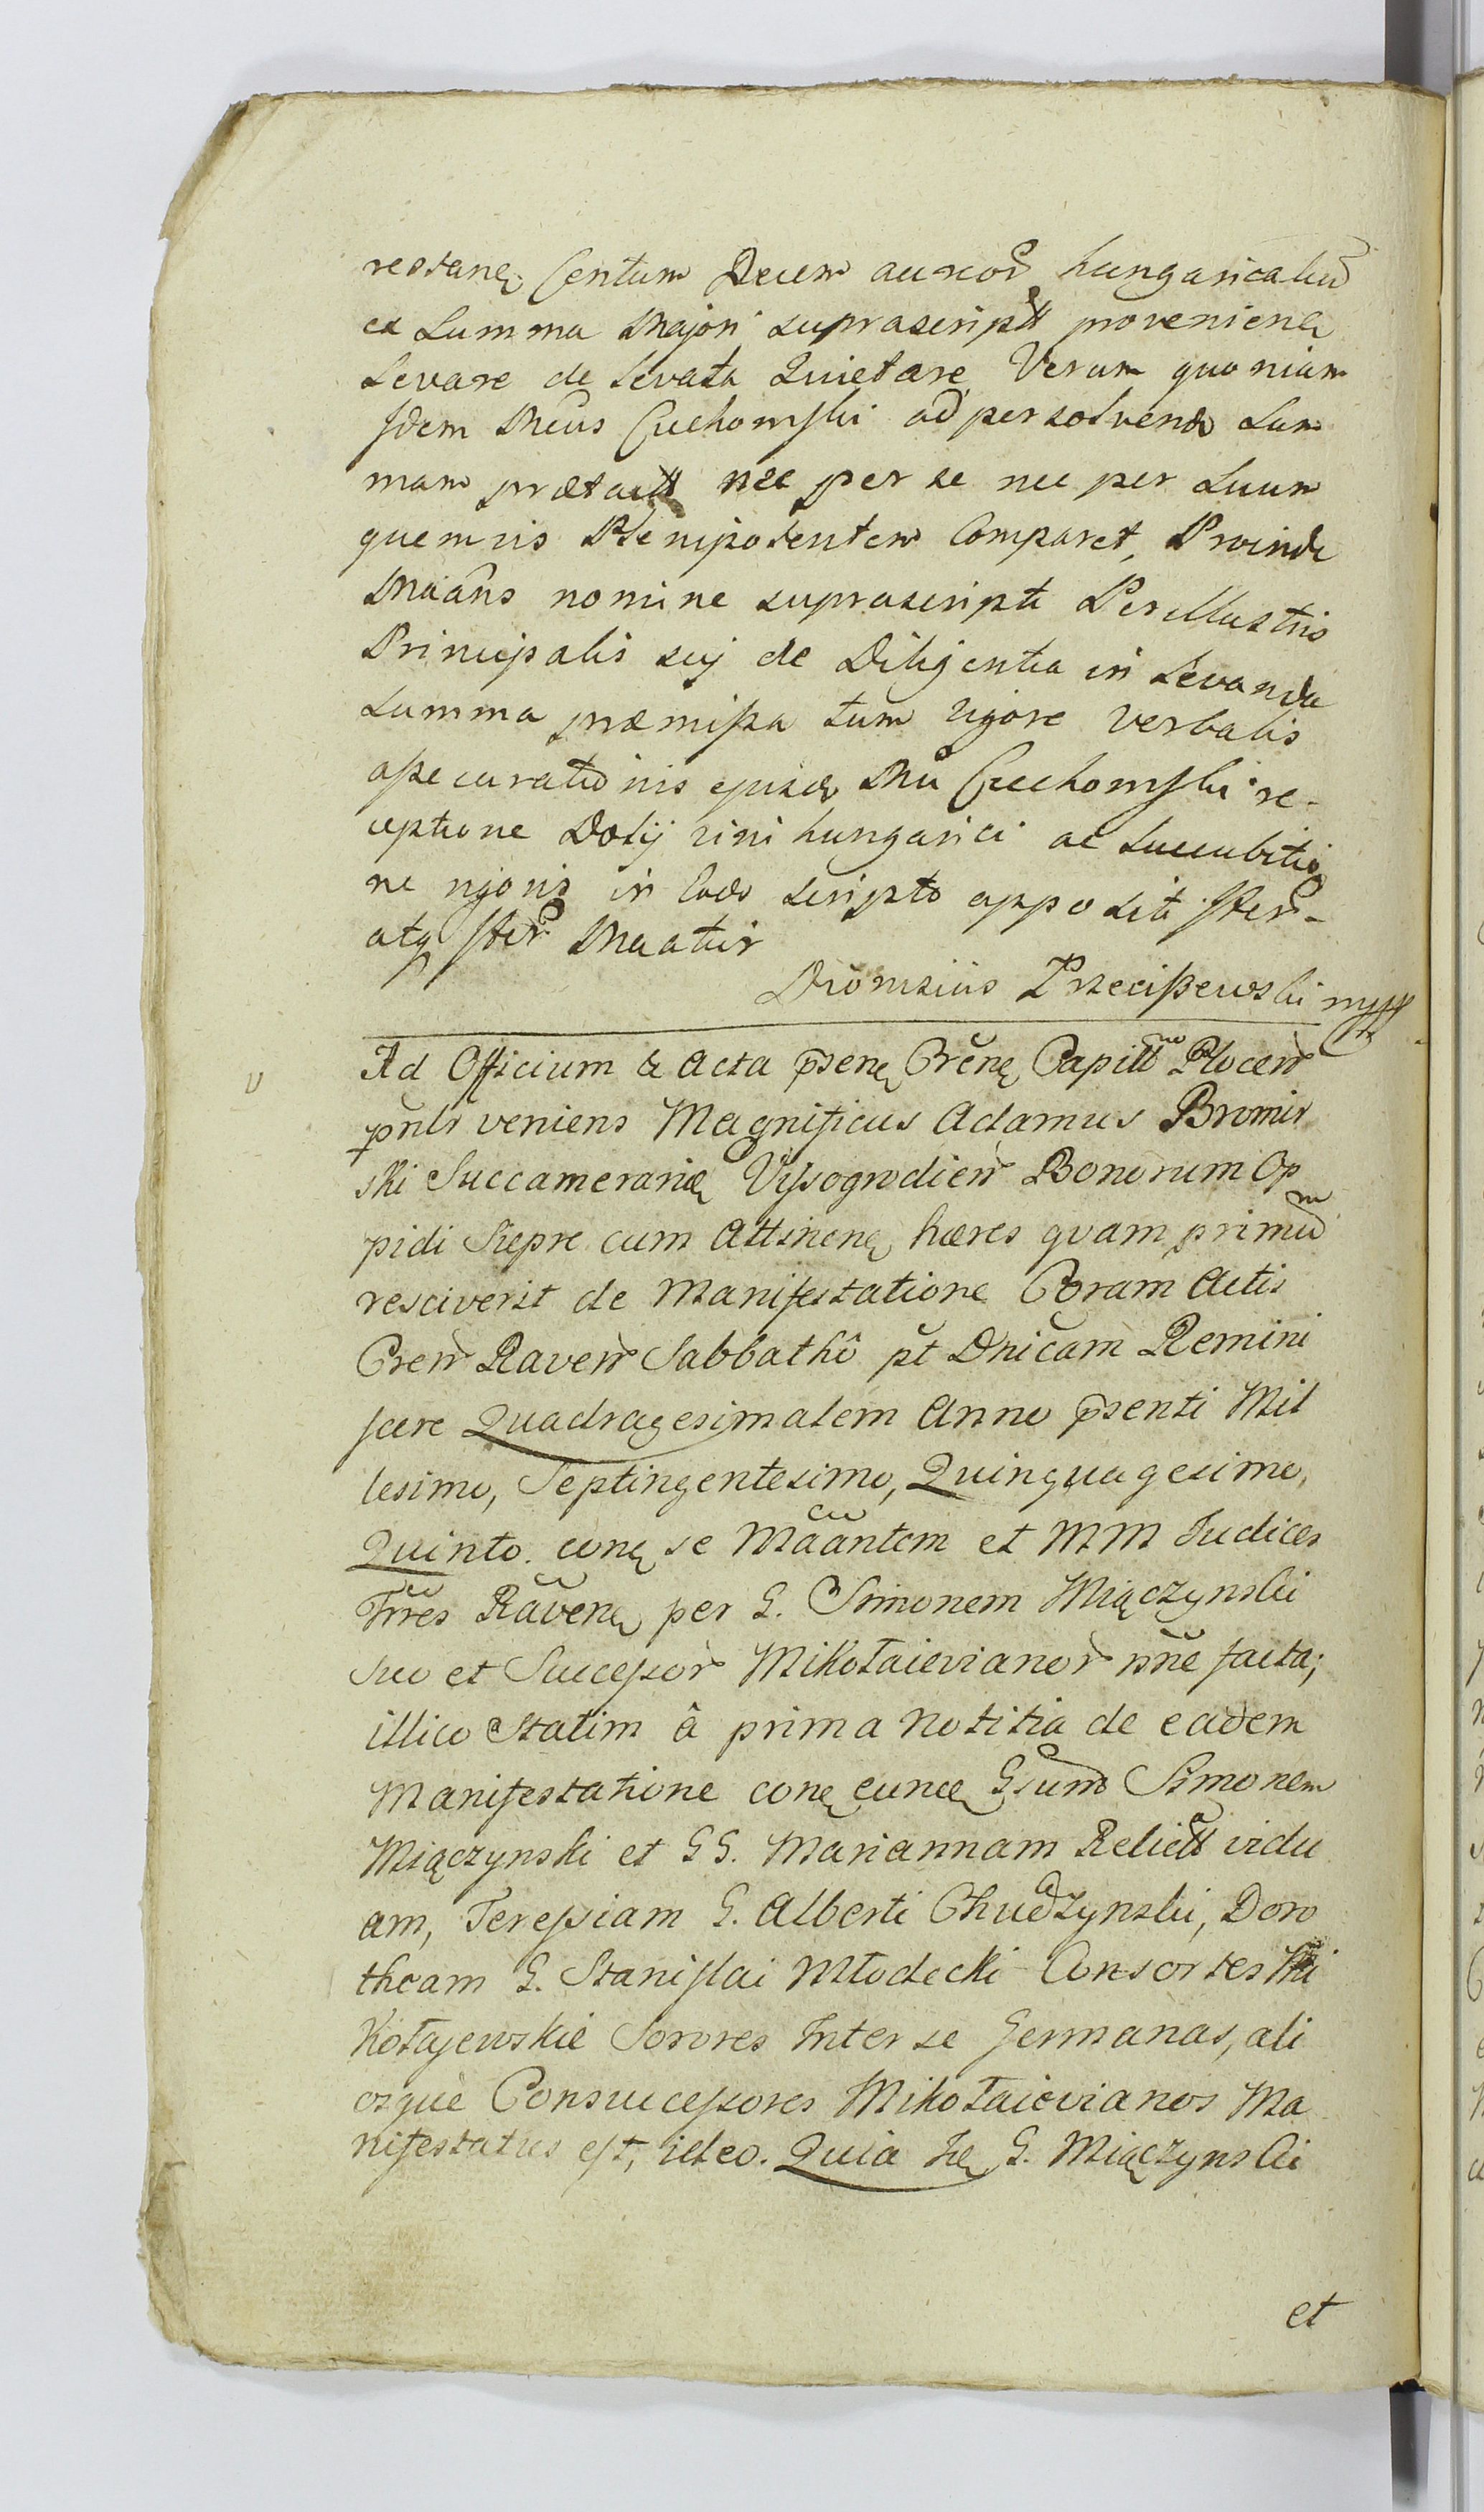 restanę Centum Decem aureor hungaricaliu
ex Summa Majori suprascriptt provenienę
Levare de Levata Quietare Verum quoniam
Idem Mcus Ciechomski ad persolvend Sum
mam prætactt nec per se nec per Suum
quemvis Plenipotentem Comparet, Proinde
Maans nomine suprascripti Perillustris
Principalis suj de Diligentia in Levanda
Summa præmissa tum vigore verbalis
assecurationis ejusd Mci Ciechomski re-
ceptione Dolij vini hungarici ac Succubitio
ne rigoris in Codo scripto apposita Iter-
atq Iter Maatur
Dionisius Przeciszewski mpp
Ad Officium & Acta psenę Crenę Capitt Plocen
pnlr veniens Magnificus Adamus Bromir
ski Succamerarię Vyssogrodien Bonorum Op
pidi Siepre cum Attinenę hæres qvam primu
resciverit de Manifestatione Coram Actis
Cren Raven Sabbathô pt Dnicam Remini
scere Quadragesimalem Anno psenti Mil
lesimo, Septingentesimo, Quinquagesimo,
Quinto. conę se Maantem et MM Judices
Trres Ravenę per G. Simonem Miączynski
suo et Successor Mikołaievianor nne facta;
illico Statim â prima Notitia de eadem
Manifestatione conę eunde Gsum Simonem
Miączynski et GG. Mariannam Relictt vidu
am, Teressiam G. Alberti Chudzynski, Doro
theam G. Stanislai Młodecki Consortes Mi
kołajewskie Sorores Inter se Germanas, ali
osque Consuccessores Mikołaievianos Ma
nifestatus est, ideo. Quia hę G. Miączynski
et